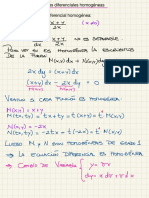 s diferenciales homogéneas
iferencial homogénea
x+y
2x
(x≠0)
x+y
2x
→ NO ES SEPARABLE.
PARA VER SI ES HOMOGÉNEA LA ESCRIBIMOS
DE LA FORMA
M(x,y)dx + N(x,y)dy
2x dy = (x+y)dx
(x+y)dx - 2x dy = 0
M(x,y) N(x,y)
VEAMOS SI CADA FUNCIÓN ES HOMOGÉNEA:
M(x,y) = x+y
M(tx,ty) = tx+ty = t(x+y) =
N(x,y) = -2x
N(tx,ty) = -2tx = t(-2x) =
LUEGO M y N SON HOMOGÉNEAS DE GRADO 1
→ LA ECUACIÓN DIFERENCIAL ES HOMOGÉNEA
→ CAMBIO DE VARIABLE
y = vx
dy = xdv + vdx